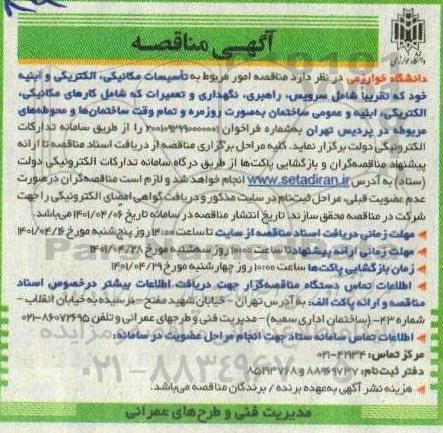 آگهی مناقصه
دانشگاه خوارزمی در نظر دارد مناقصه امور مربوط به تأسیسات مکانیکی، الکتریکی و ابنیه
خود که تقریباً شامل سرویس، راهبری، نگهداری و تعمیرات که شامل کارهای مکانیکی،
الکتریکی، ابنیه و عمومی ساختمان به‌صورت روزمره و تمام وقت ساختمان‌ها و محوطه‌های
مربوطه در پردیس تهران به‌شماره فراخوان را از طریق سامانه تدارکات
الکترونیکی دولت برگزار نماید. کلیه مراحل برگزاری مناقصه از دریافت اسناد مناقصه تا ارائه
پیشنهاد مناقصه‌گران و بازگشایی پاکت‌ها از طریق درگاه سامانه تدارکات الکترونیکی دولت
(ستاد) به آدرس www.setadiran.ir انجام خواهد شد و لازم است مناقصه‌گران در صورت
عدم عضویت قبلی، مراحل ثبت‌نام در سایت مذکور و دریافت گواهی امضای الکترونیکی را جهت
شرکت در مناقصه محقق سازند. تاریخ انتشار مناقصه در سامانه تاریخ ۱۴۰۱/۰۴/۰۶ می‌باشد.
مهلت زمانی دریافت اسناد مناقصه از سایت تا ساعت ۱۴:۰۰ روز پنج‌شنبه مورخ ۱۴۰۱/۰۴/۱۶
مهلت زمانی ارائه پیشنهاد تا ساعت ۱۰:۰۰ روز سه‌شنبه مورخ ۱۴۰۱/۰۴/۲۸
زمان بازگشایی پاکت‌ها ساعت ۱۰:۰۰ روز چهارشنبه مورخ ۱۴۰۱/۰۴/۲۹
اطلاعات تماس دستگاه مناقصه‌گزار جهت دریافت اطلاعات بیشتر درخصوص اسناد
مناقصه و ارائه پاکت الف: به آدرس تهران - خیابان شهید مفتح - نرسیده به خیابان انقلاب -
شماره ۴۳ - (ساختمان اداری سمیه) - مدیریت فنی و طرحهای عمرانی و تلفن ۸۶۰۷۲۶۹۵-۰۲۱
اطلاعات تماس سامانه ستاد جهت انجام مراحل عضویت در سامانه:
مرکز تماس: ۴۱۹۳۴-۰۲۱
دفتر ثبت‌نام: ۸۸۹۶۹۷۳۷ و ۸۵۱۹۳۷۶۸
هزینه نشر آگهی به‌عهده برنده / برندگان مناقصه می‌باشد.
مدیریت فنی و طرح‌های عمرانی